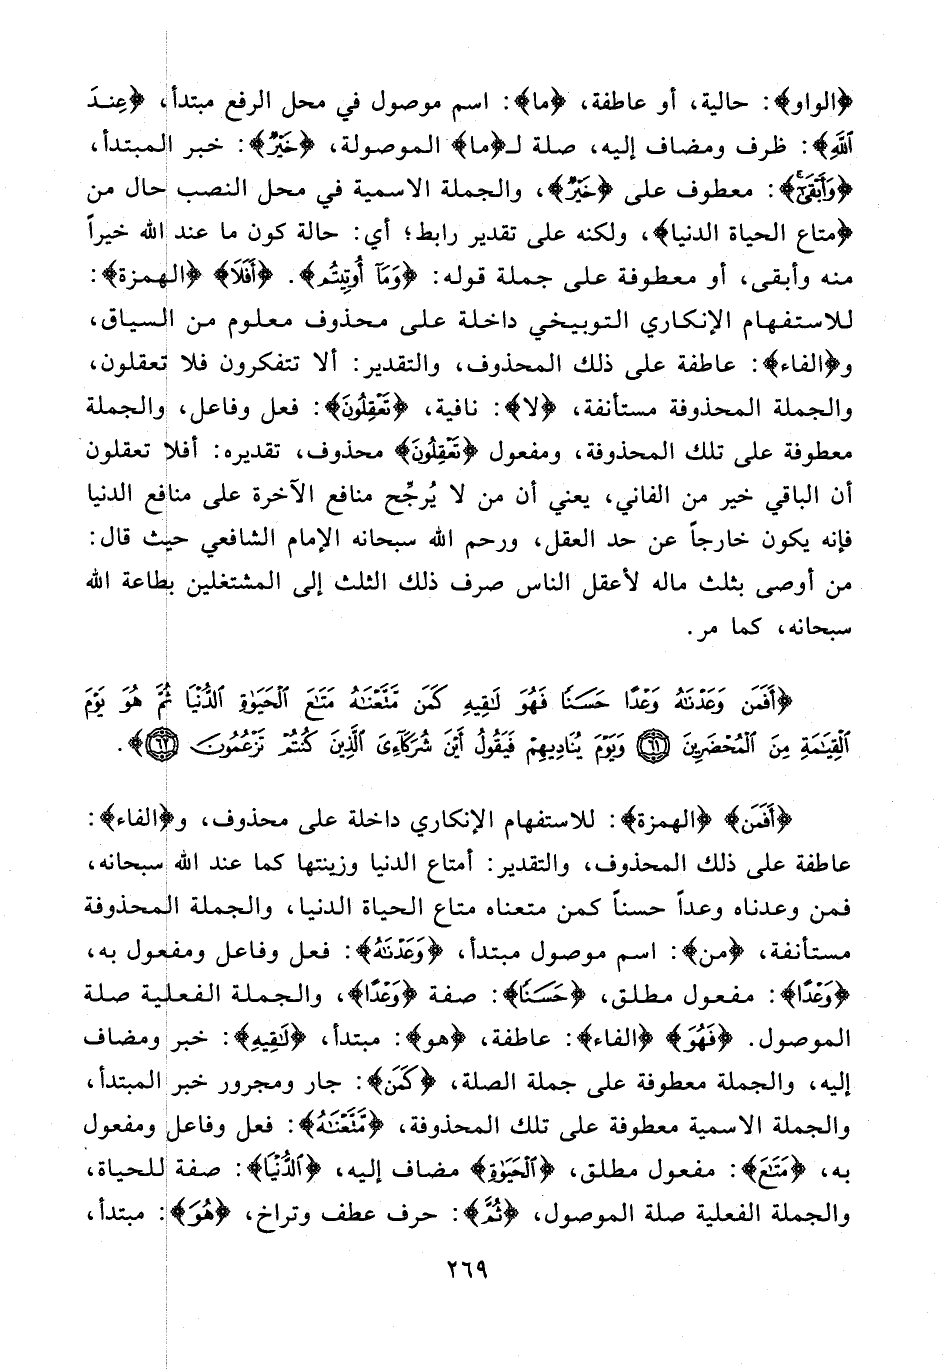 ﴿الواو﴾: حالية، أو عاطفة، ﴿ما﴾: اسم موصول في محل الرفع مبتدأ، ﴿عِندَ
ٱللَّهِ﴾: ظرف ومضاف إليه، صلة لـ﴿ما﴾ الموصولة، ﴿خَيْرٌ﴾: خبر المبتدأ،
﴿وَأَبْقَىٰٓ﴾: معطوف على ﴿خَيْرٌ﴾، والجملة الاسمية في محل النصب حال من
﴿متاع الحياة الدنيا﴾، ولكنه على تقدير رابط؛ أي: حالة كون ما عند الله خيراً
منه وأبقى، أو معطوفة على جملة قوله: ﴿وَمَآ أُوتِيتُم﴾. ﴿أَفَلَا﴾ ﴿الهمزة﴾:
للاستفهام الإنكاري التوبيخي داخلة على محذوف معلوم من السياق،
و﴿الفاء﴾: عاطفة على ذلك المحذوف، والتقدير: ألا تتفكرون فلا تعقلون،
والجملة المحذوفة مستأنفة، ﴿لا﴾: نافية، ﴿تَعْقِلُونَ﴾: فعل وفاعل، والجملة
معطوفة على تلك المحذوفة، ومفعول ﴿تَعْقِلُونَ﴾ محذوف، تقديره: أفلا تعقلون
أن الباقي خير من الفاني، يعني أن من لا يُرجِّح منافع الآخرة على منافع الدنيا
فإنه يكون خارجاً عن حد العقل، ورحم الله سبحانه الإمام الشافعي حيث قال:
من أوصى بثلث ماله لأعقل الناس صرف ذلك الثلث إلى المشتغلين بطاعة الله
سبحانه، كما مر.
﴿أَفَمَن وَعَدْنَٰهُ وَعْدًا حَسَنًا فَهُوَ لَٰقِيهِ كَمَن مَّتَّعْنَٰهُ مَتَٰعَ ٱلْحَيَوٰةِ ٱلدُّنْيَا ثُمَّ هُوَ يَوْمَ
ٱلْقِيَٰمَةِ مِنَ ٱلْمُحْضَرِينَ ٦١ وَيَوْمَ يُنَادِيهِمْ فَيَقُولُ أَيْنَ شُرَكَآءِىَ ٱلَّذِينَ كُنتُمْ تَزْعُمُونَ ٦٢﴾.
﴿أَفَمَن﴾ ﴿الهمزة﴾: للاستفهام الإنكاري داخلة على محذوف، و﴿الفاء﴾:
عاطفة على ذلك المحذوف، والتقدير: أمتاع الدنيا وزينتها كما عند الله سبحانه،
فمن وعدناه وعداً حسناً كمن متعناه متاع الحياة الدنيا، والجملة المحذوفة
مستأنفة، ﴿من﴾: اسم موصول مبتدأ، ﴿وَعَدْنَٰهُ﴾: فعل وفاعل ومفعول به،
﴿وَعْدًا﴾: مفعول مطلق، ﴿حَسَنًا﴾: صفة ﴿وَعْدًا﴾، والجملة الفعلية صلة
الموصول. ﴿فَهُوَ﴾ ﴿الفاء﴾: عاطفة، ﴿هو﴾: مبتدأ، ﴿لَٰقِيهِ﴾: خبر ومضاف
إليه، والجملة معطوفة على جملة الصلة، ﴿كَمَن﴾: جار ومجرور خبر المبتدأ،
والجملة الاسمية معطوفة على تلك المحذوفة، ﴿مَّتَّعْنَٰهُ﴾: فعل وفاعل ومفعول
به، ﴿مَتَٰعَ﴾: مفعول مطلق، ﴿ٱلْحَيَوٰةِ﴾ مضاف إليه، ﴿ٱلدُّنْيَا﴾: صفة للحياة،
والجملة الفعلية صلة الموصول، ﴿ثُمَّ﴾: حرف عطف وتراخ، ﴿هُوَ﴾: مبتدأ،
٢٦٩